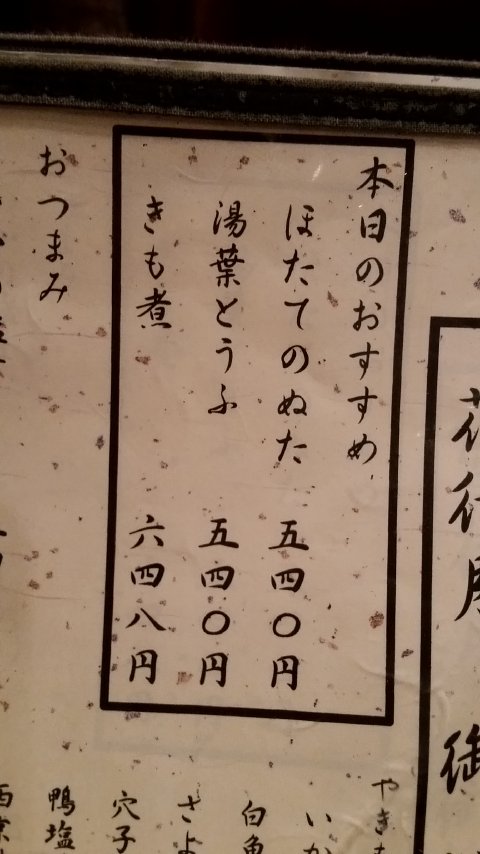 本日のおすすめ
ほたてのぬた 五四〇円
湯葉とうふ 五四〇円
きも煮 六四八円
おつまみ
やき
いか
白魚
さよ
穴子
鴨塩
西京
御